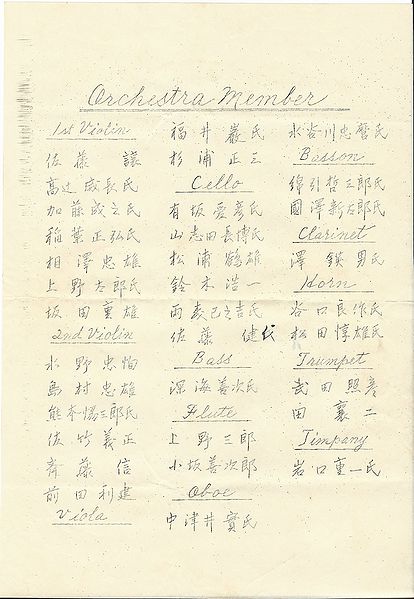 Orchestra Member
1st Violin
佐藤 譲
高辻 成長氏
加藤成之氏
稲葉正弘氏
相澤忠雄
上野太郎氏
坂田重雄
2nd Violin
水野忠恂
島村忠雄
熊本陽三郎氏
佐竹義正
斉藤 信
前田利建
Viola
福井 巌氏
杉浦正三
Cello
有坂愛彦氏
山志田長博氏
松浦鶴雄
鈴木浩一
雨亥己之吉氏
佐藤 健
Bass
深海善次氏
Flute
上野三郎
小坂善次郎
Oboe
中津井實氏
水谷川忠麿氏
Basson
綿引哲三郎氏
國澤新太郎氏
Clarinet
澤 鎮男氏
Horn
谷口良作氏
松田惇雄氏
Trumpet
武田照彦
田 襄二
Timpany
岩口重一氏